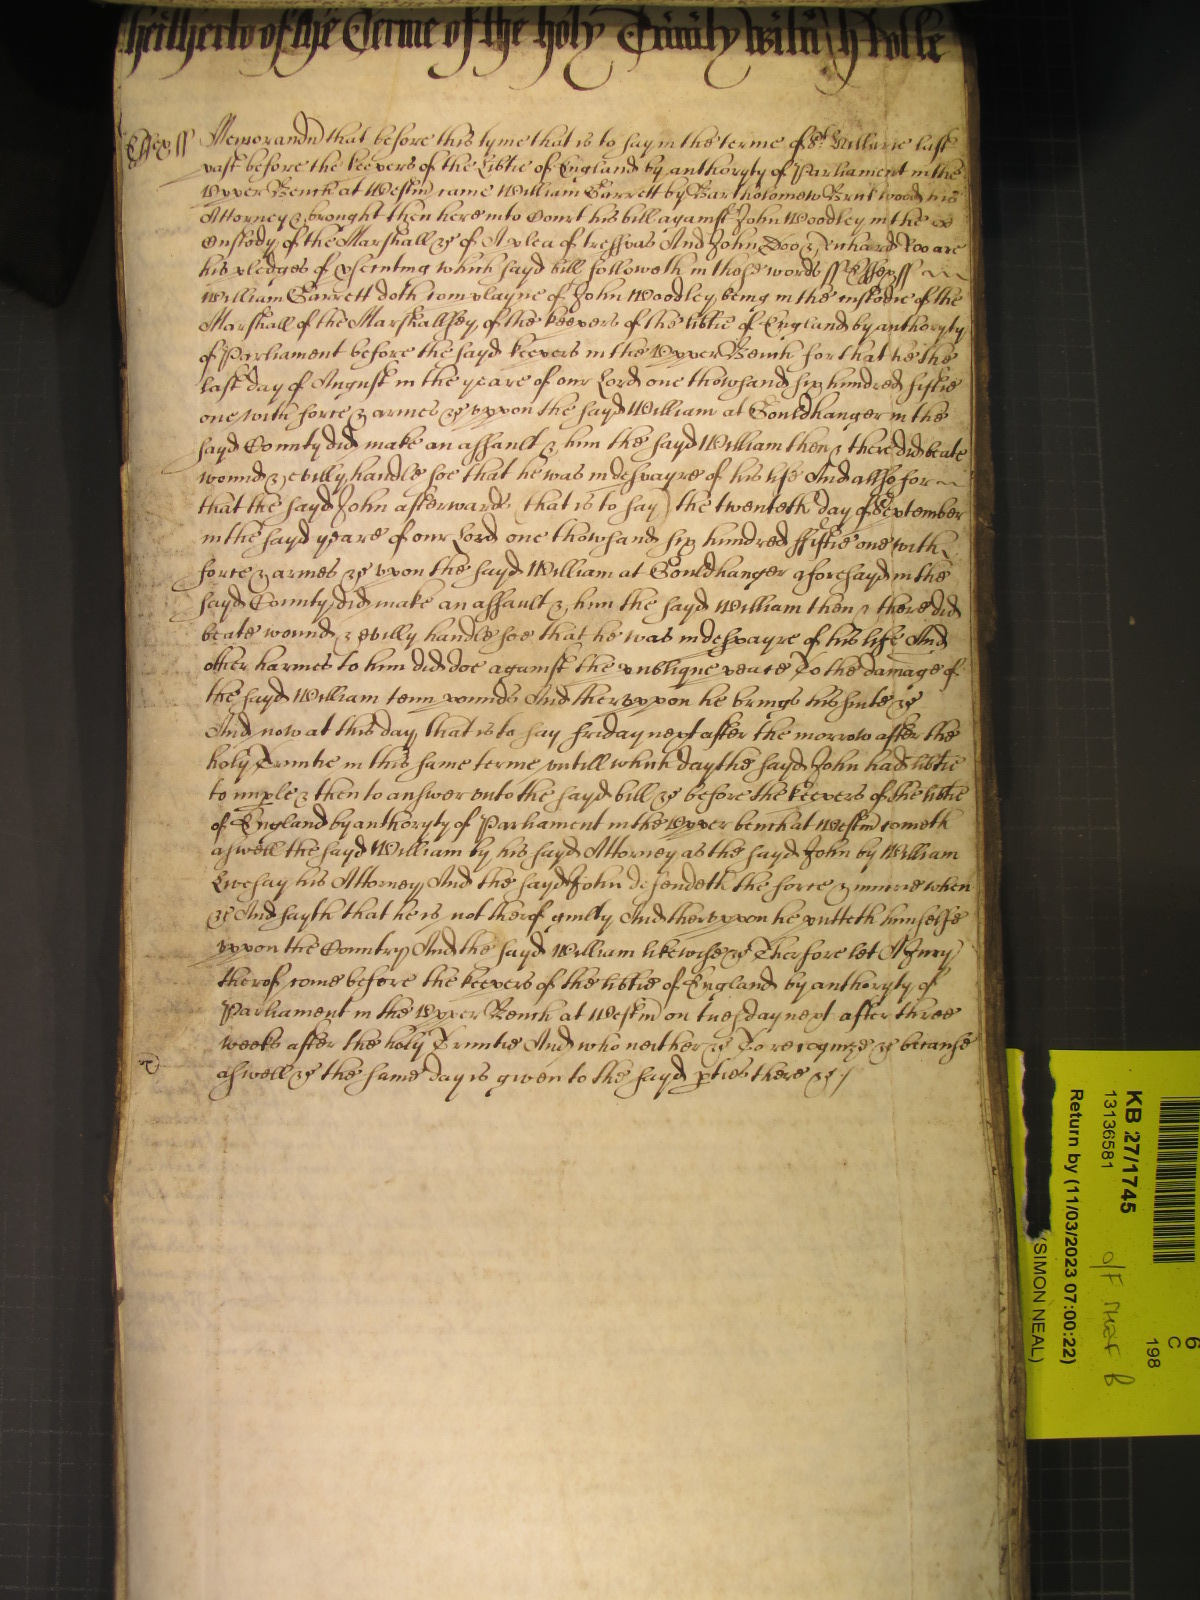 heitherto of the Terme of the holy Trinity with h Rolle
Essex ss Memorand that before this tyme that is to say in the terme of St Hillarie last
past before the keepers of the Libtie of England by authoryty of Parliament in the
Upper Bench at Westm came William Garrett by Bartholomew Brutwood his
Attorney & brought then here into Court his bill against John Woodley in the
Custody of the Marshall &c of A plea of tresspas And John Doo & Richard Roo are
his pledges of psecuting which sayd bill followeth in these words ss Essex ss
William Garrett doth complayne of John Woodley being in the custodie of the
Marshall of the Marshallsey of the keepers of the libtie of England by authoryty
of Parliament before the sayd keepers in the Upper Bench for that he the
last day of August in the yeare of our Lord one thowsand six hundred fiftie
one with force & armes &c uppon the sayd William at Gouldhanger in the
sayd County did make an assault & him the sayd William then & there did beate
wound & evilly handle soe that he was in despayre of his life And allso for
that the sayd John afterwards that is to say the twenteth day of September
in the sayd yeare of our Lord one thowsand six hundred ffiftie one with
force & armes &c upon the sayd William at Gouldhanger aforesayd in the
sayd County did make an assault & him the sayd William then & there did
beate wound & evilly handle soe that he was in despayre of his life And
other harmes to him did doe against the publique peace To the damage of
the sayd William tenn pounds And theruppon he brings his suite &c
And now at this day that is to say friday next after the morrow after the
holy Trinitie in this same terme untill which day the sayd John had libtie
to imple & then to answer unto the sayd bill &c before the keepers of the libtie
of England by authoryty of Parliament in the Upper bench at Westm cometh
aswell the sayd William by his sayd Attorney as the sayd John by William
Livesay his Attorney And the sayd John defendeth the force & iniurie when
&c And sayth that he is not therof guilty And theruppon he putteth himselfe
uppon the Country And the sayd William likewise &c Therfore let A Jury
therof come before the keepers of the libtie of England by authoryty of
Parliament in the Upper Bench at Westm on tuesday next after three
weeks after the holy Trinitie And who neither &c To recognize &c because
aswell &c the same day is given to the sayd pties there &c /
KB 27/1745
13136581
Return by (11/03/2023 07:00:22)
(SIMON NEAL)
6
C
198